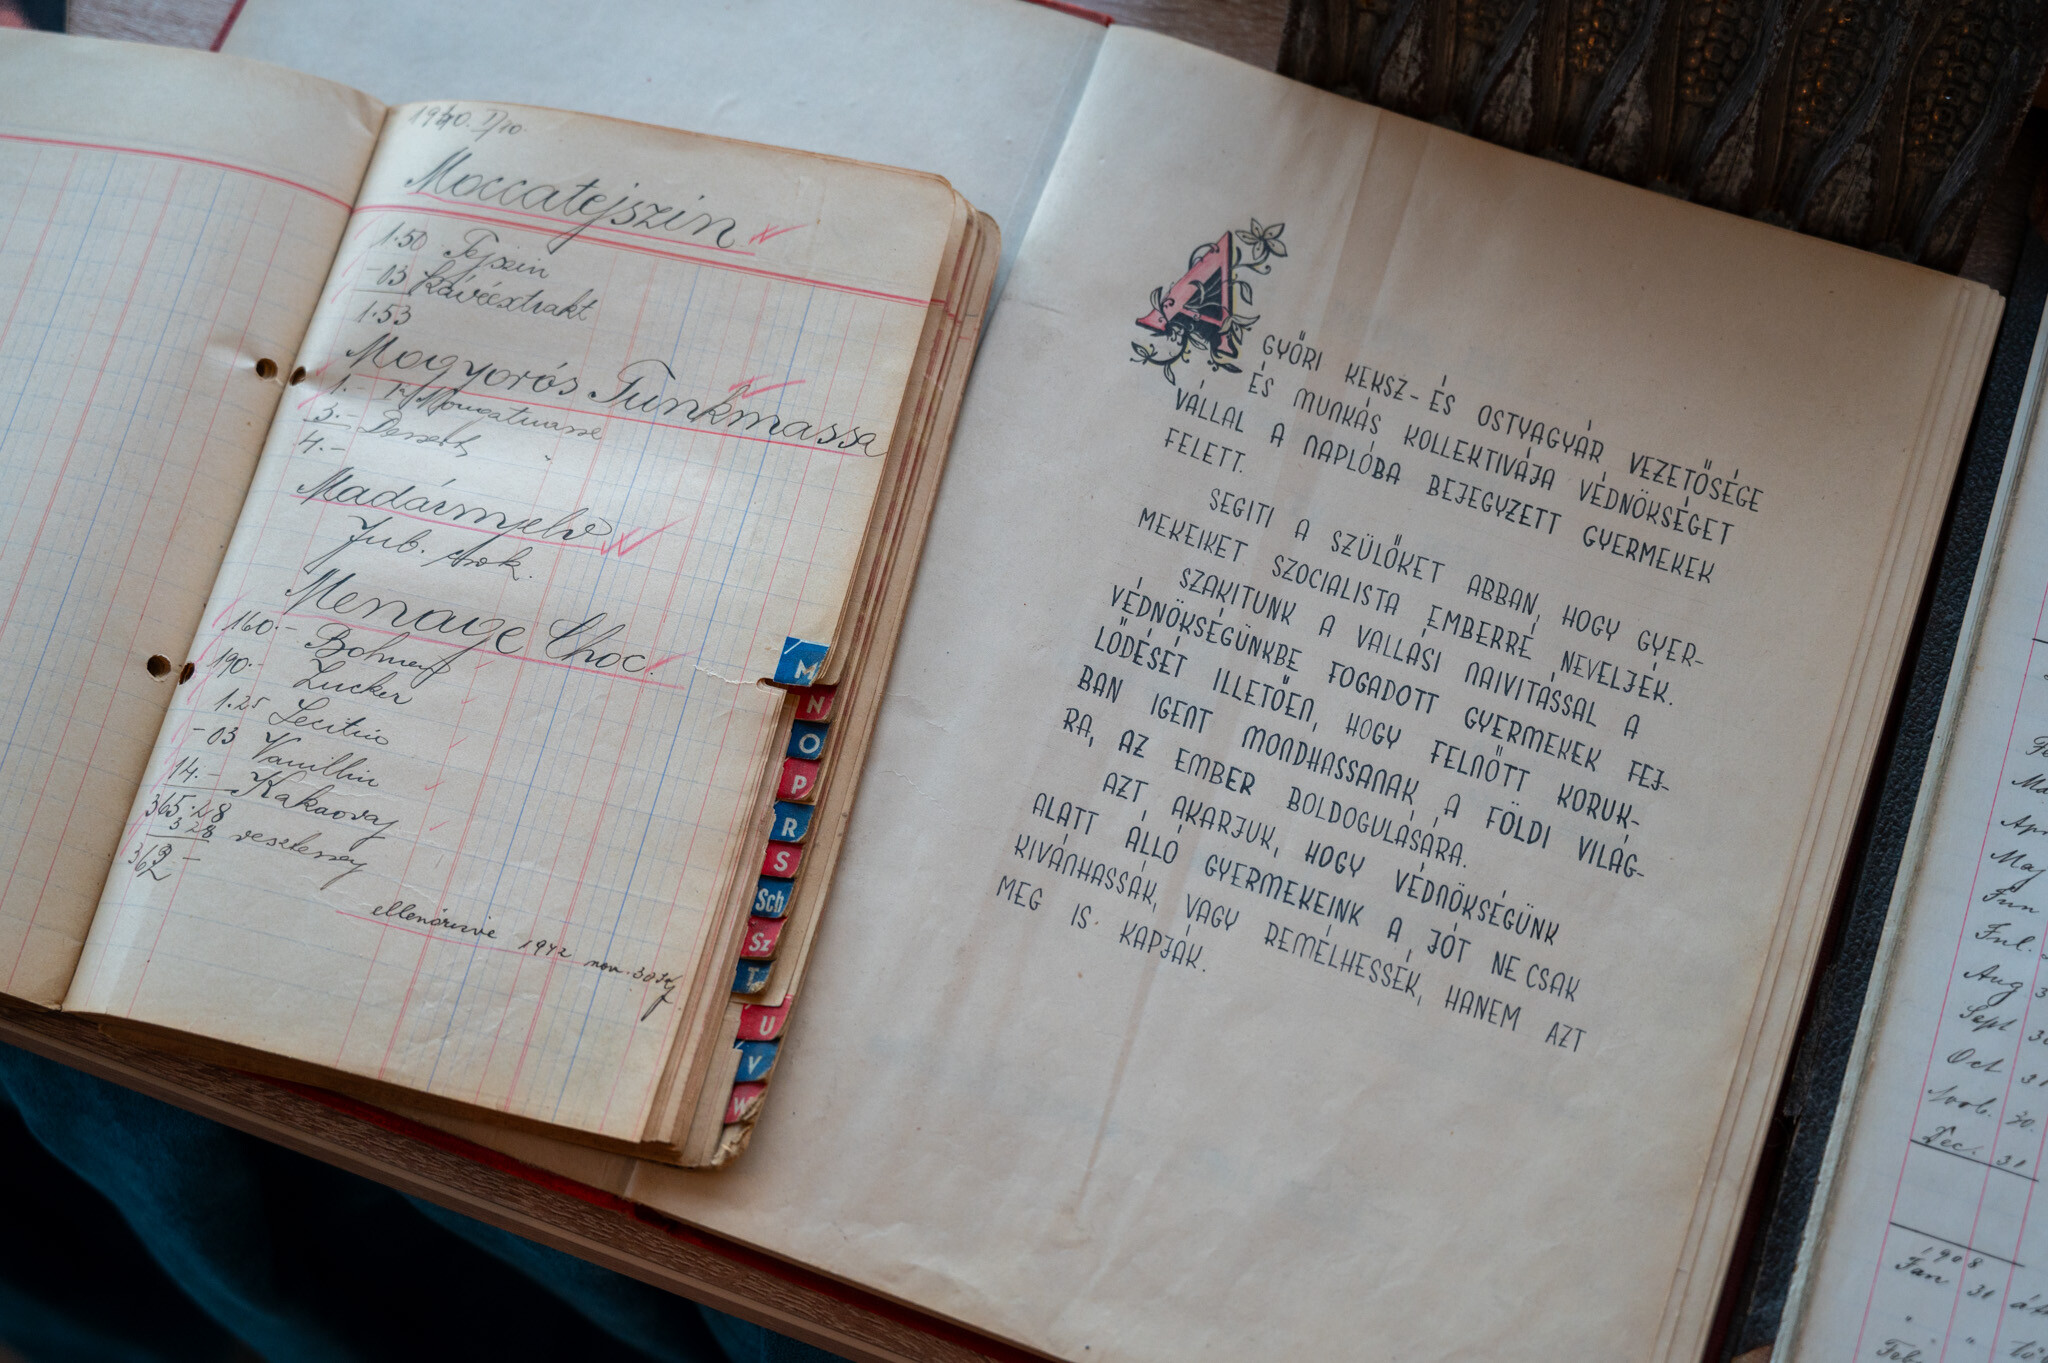 1940. I/10.
Moccatejszin
1.50 Tejszin
-03 Kávéextrakt
1.53
Mogyorós Tunkmassa
1.- Nougatmasse
3.- Dessert "
4.-
Madárnyelv
Jub. csok.
Menage Choc.
160.-
190.- Zucker
1.25 Lecitin
-03 Vanillin
14.- Kakaovaj
365.28
3 28 veszteség
362 -
ellenőrizve 1942 nov. 30
M
N
O
P
R
S
Sch
Sz
T
U
V
W
A GYŐRI KEKSZ- ÉS OSTYAGYÁR VEZETŐSÉGE
ÉS MUNKÁS KOLLEKTIVÁJA VÉDNÖKSÉGET
VÁLLAL A NAPLÓBA BEJEGYZETT GYERMEKEK
FELETT.
SEGITI A SZÜLŐKET ABBAN, HOGY GYER-
MEKEIKET SZOCIALISTA EMBERRÉ NEVELJÉK.
SZAKITUNK A VALLÁSI NAIVITÁSSAL A
VÉDNÖKSÉGÜNKBE FOGADOTT GYERMEKEK FEJ-
LŐDÉSÉT ILLETŐEN, HOGY FELNŐTT KORUK-
BAN IGENT MONDHASSANAK A FÖLDI VILÁG-
RA, AZ EMBER BOLDOGULÁSÁRA.
AZT AKARJUK, HOGY VÉDNÖKSÉGÜNK
ALATT ÁLLÓ GYERMEKEINK A JÓT NE CSAK
KIVÁNHASSÁK, VAGY REMÉLHESSÉK, HANEM AZT
MEG IS KAPJÁK.
Maj
Jun
Jul.
Aug 3
Sept 30
Oct 31
Nov. 30.
Dec. 31
1908
Jan 31
Feb